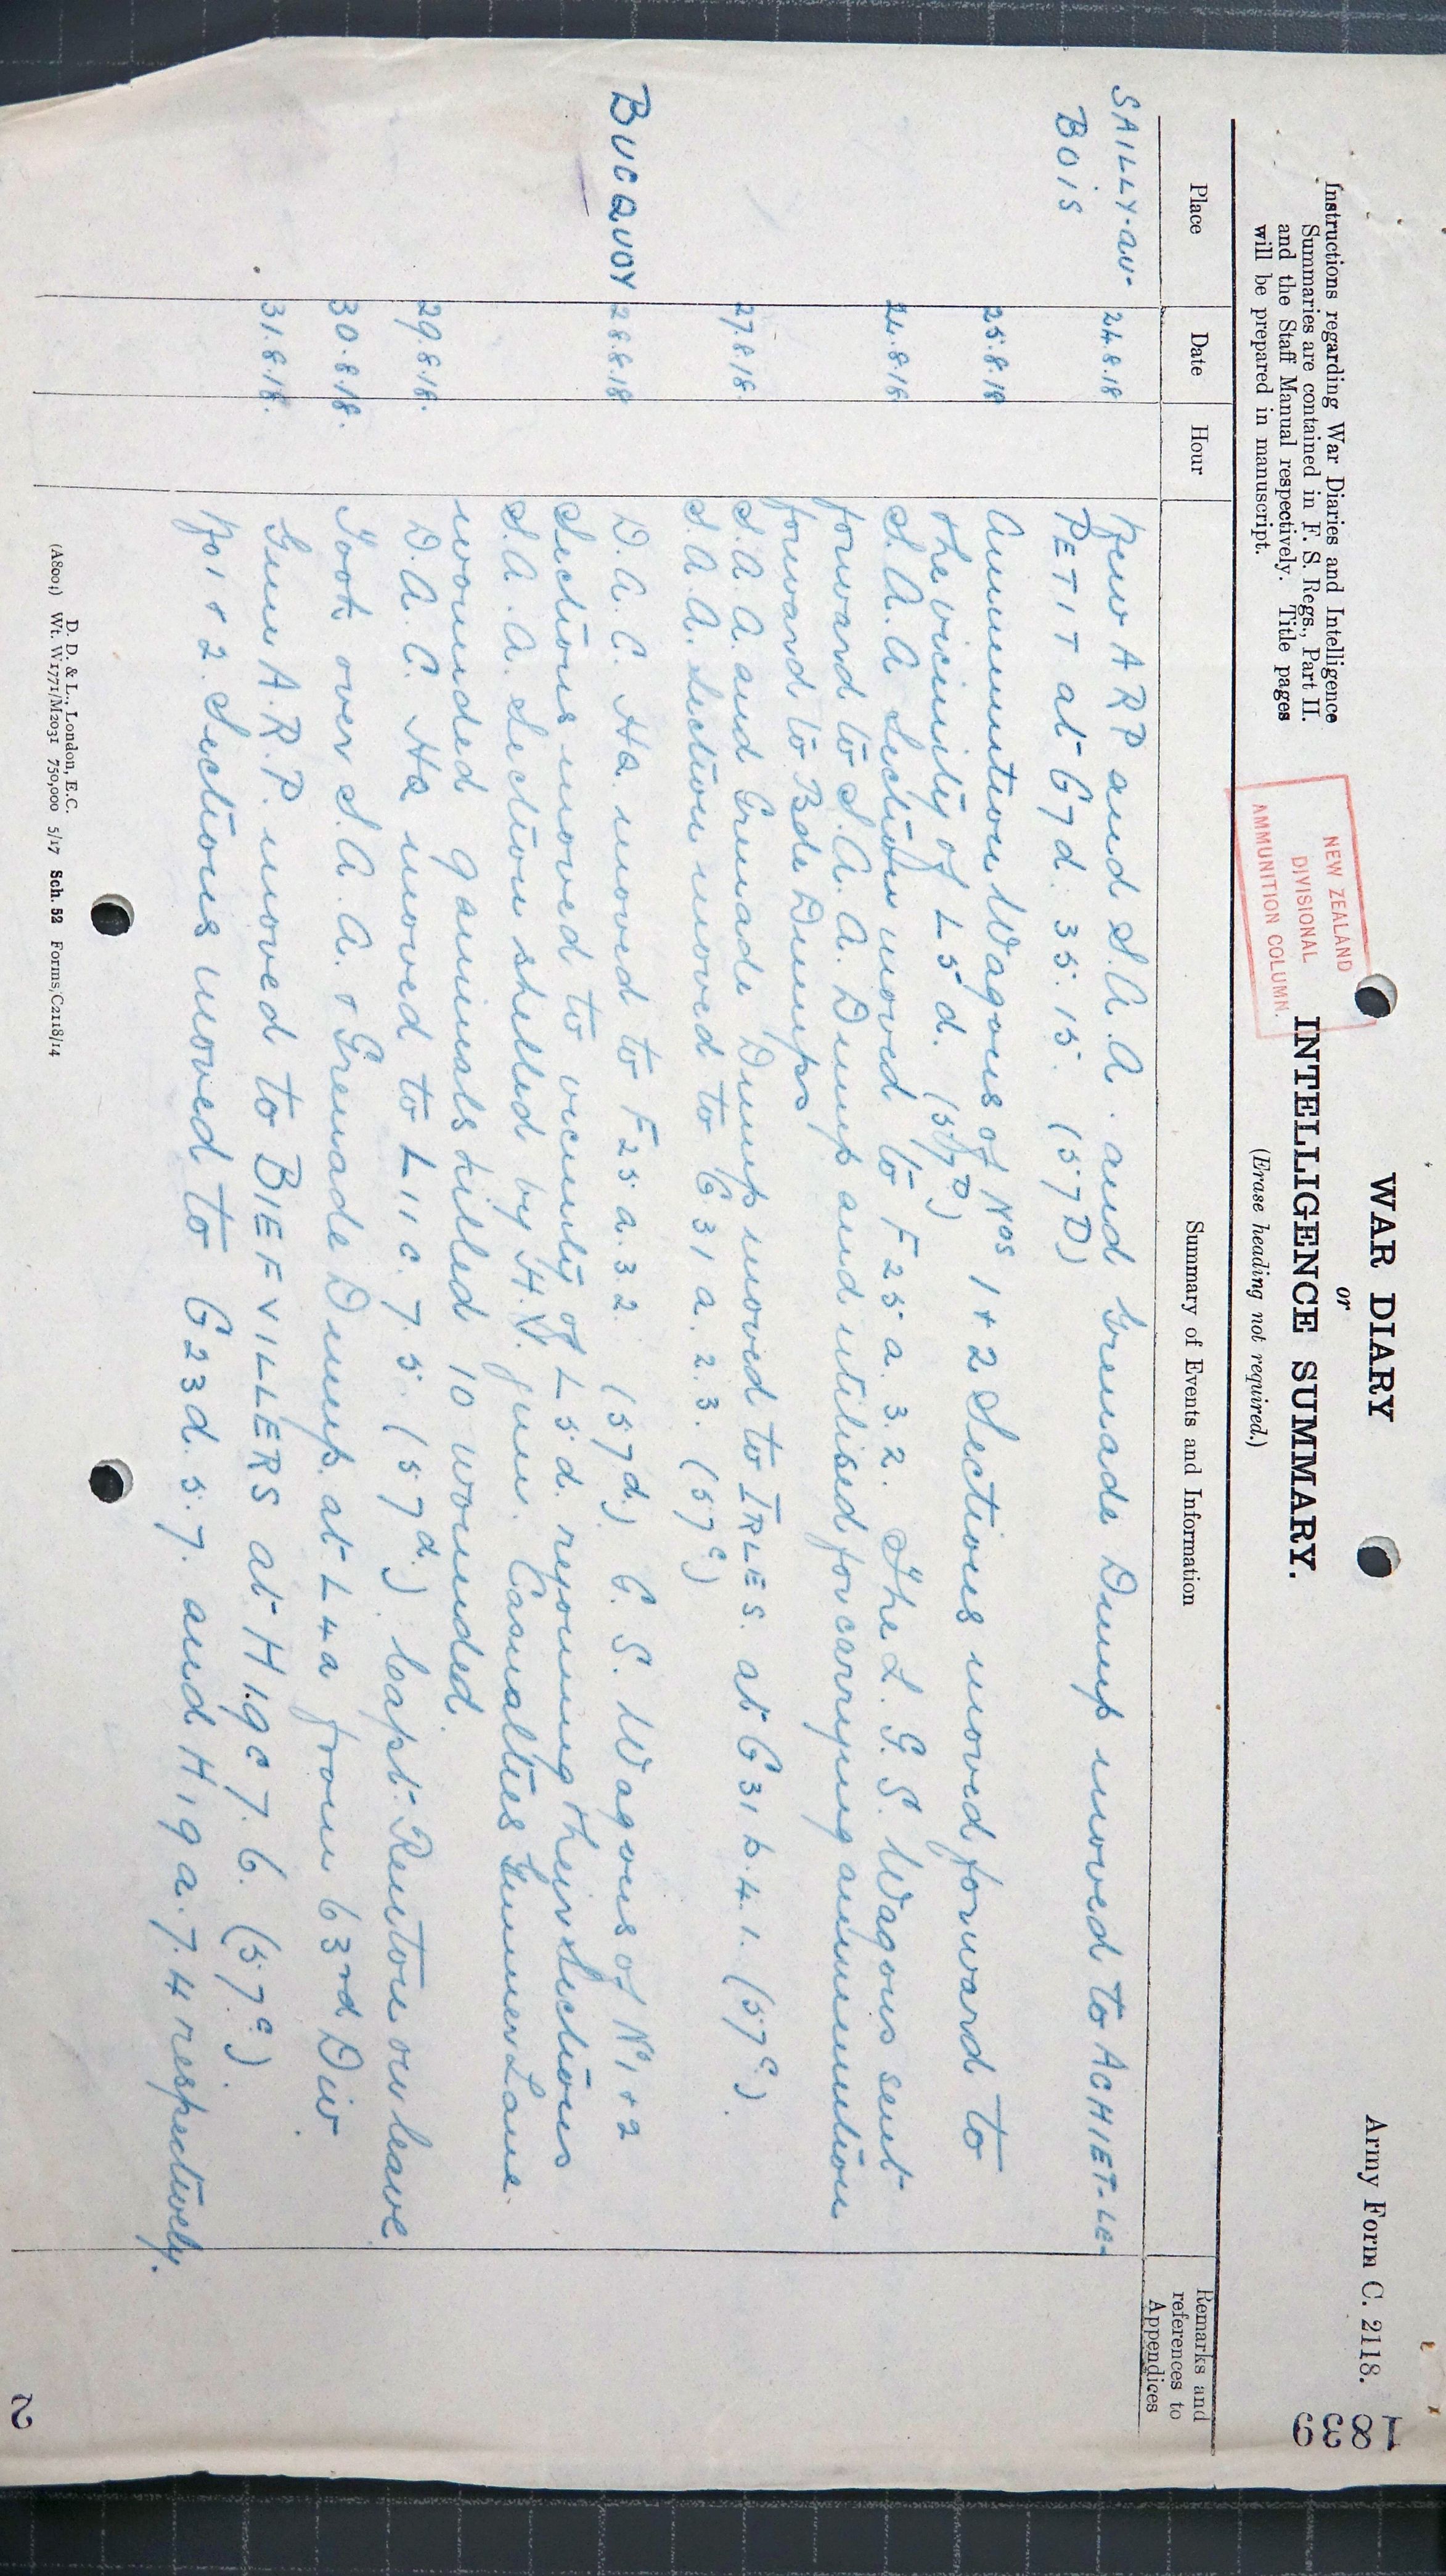 Army Form C. 2118.
1839
WAR DIARY
or
INTELLIGENCE SUMMARY.
(Erase heading not required.)
Instructions regarding War Diaries and Intelligence
Summaries are contained in F. S. Regs., Part II.
and the Staff Manual respectively. Title pages
will be prepared in manuscript.
NEW ZEALAND
DIVISIONAL
AMMUNITION COLUMN.
Place Date Hour Summary of Events and Information Remarks and references to Appendices
SAILLY-au- 24.8.18 New A R P and S.A.A. and Grenade Dump moved to ACHIET-LE-
BOIS PETIT at G7d. 35.15. (57D)
25.8.18 Ammunition Wagons of Nos 1 + 2 Sections moved forward to
the vicinity of L5d. (57D)
26.8.18 S.A.A Section moved to F25a.3.2. The L.G.S. Wagons sent
forward to S.A.A. Dump and utilised for carrying ammunition
forward to Bde Dumps
27.8.18. S.A.A. and Grenade Dump moved to IRLES. at G31b.4.1. (57c).
S.A.A. Section moved to G31a.2.3. (57c)
BUCQUOY 28.8.18 D.A.C. HQ. moved to F25.a.3.2. (57d.) G.S. Wagons of No 1 + 2
Sections moved to vicinity of L5.d. rejoining their Sections
S.A.A. Section shelled by H.V. gun. Casualties Gunner Lane.
wounded 9 animals killed 10 wounded.
29.8.18. D.A.C. HQ moved to L11c.7.5. (57d.). Capt. Renton on leave
30.8.18. Took over S.A.A. + Grenade Dump. at L4a from 63rd Div.
31.8.18. Gun A.R.P. moved to BIEFVILLERS at H19c7.6. (57c).
No 1 + 2. Sections moved to G23d.5.7. and H19a.7.4 respectively.
D. D. & L., London, E.C.
(A8004) Wt. W1771/M2031 750,000 5/17 Sch. 52 Forms/C2118/14
2